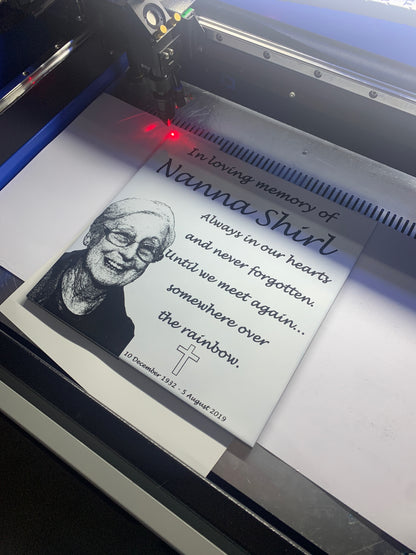 In loving memory of
Nanna Shirl
Always in our hearts
and never forgotten.
Until we meet again...
somewhere over
the rainbow.
10 December 1932 - 5 August 2019